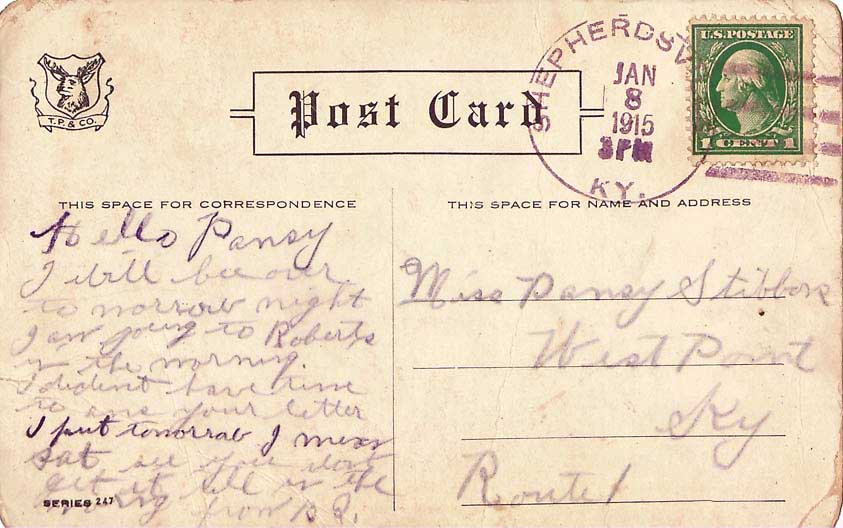 T.P. & CO.
Post Card
SHEPHERDSV
JAN
8
1915
3 PM
KY.
U.S. POSTAGE
1 CENT 1
THIS SPACE FOR CORRESPONDENCE
Hello Pansy
I will bee over
to morrow night
I am going to Roberts
in the morning.
I dident have time
to ans your letter
I put tomorrab I mean
Sat see you dont
get it till in the
from
SERIES 247
THIS SPACE FOR NAME AND ADDRESS
Miss Pansy Stibbons
West Point
Ky
Route 1